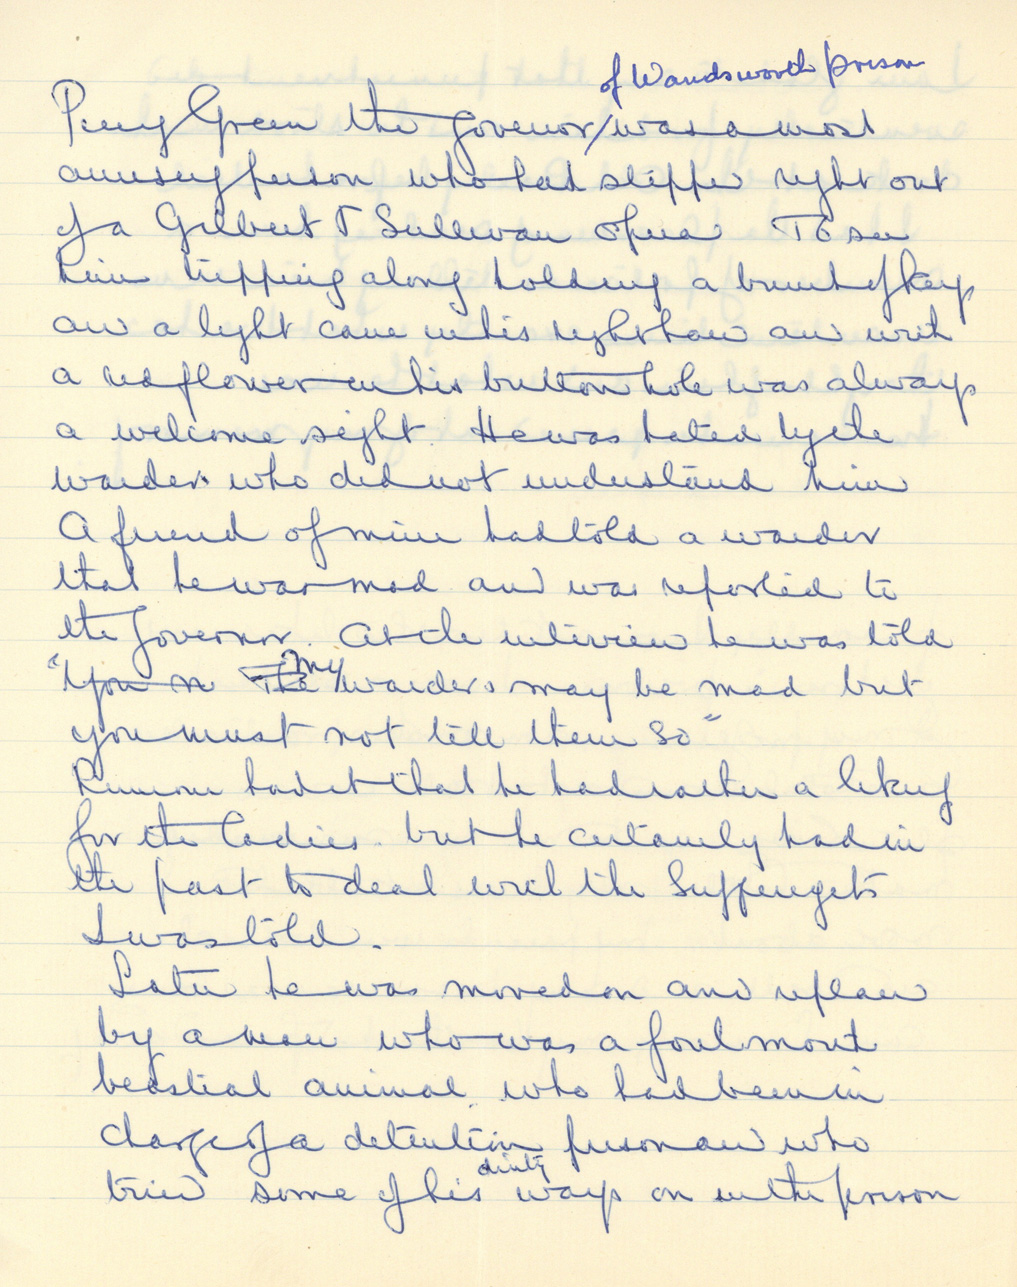 of Wandsworth prison
Percy Green the Governor / was a most
amusing person who had slipped right out
of a Gilbert & Sullivan Opera To see
him tripping along holding a bunch of keys
and a light cane in his right hand and with
a red flower in his button hole was always
a welcome sight. He was hated by the
warders who did not understand him
A friend of mine had told a warder
that he was mad and was reported to
the Governor. At the interview he was told
"You The my warders may be mad but
you must not tell them so"
Rumour had it that he had rather a liking
for the ladies. but he certainly had in
the past to deal with the Suffragets
I was told.
Later he was moved on and replaced
by a man who was a foul mouth
beastial animal who had been in
charge of a detention prison and who
dirty
tried some of his ways on in the prison